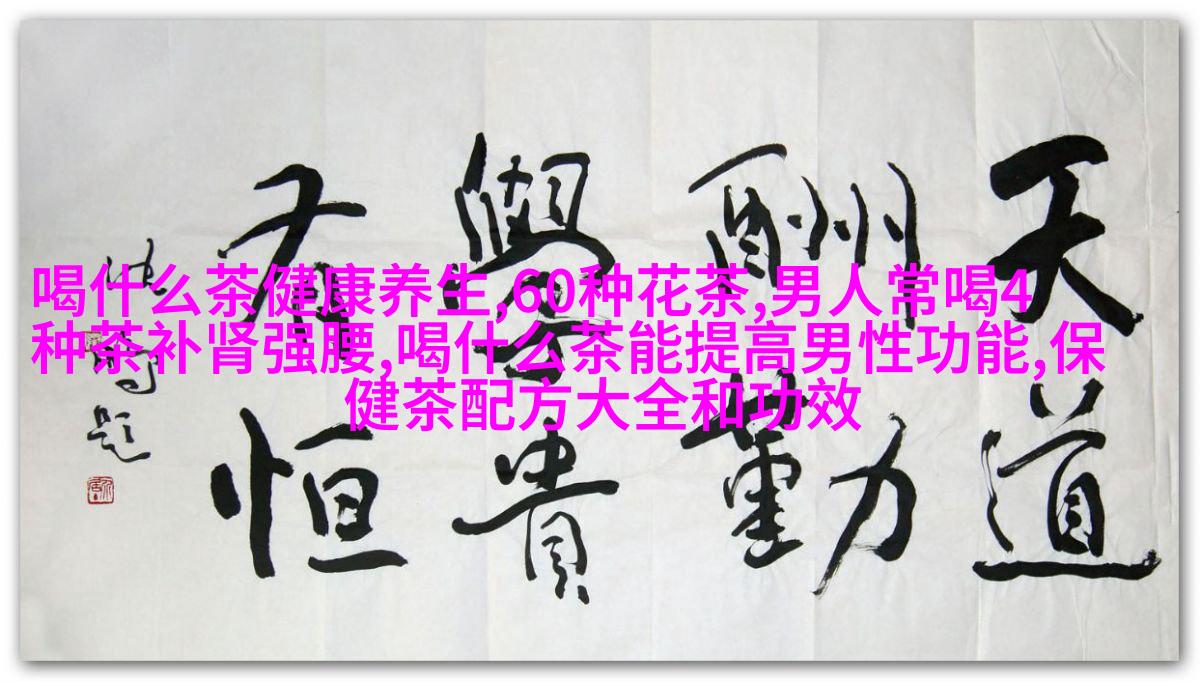 天道
酬勤
學貴
有恒
沈鹏题
喝什么茶健康养生,60种花茶,男人常喝4
种茶补肾强腰,喝什么茶能提高男性功能,保
健茶配方大全和功效